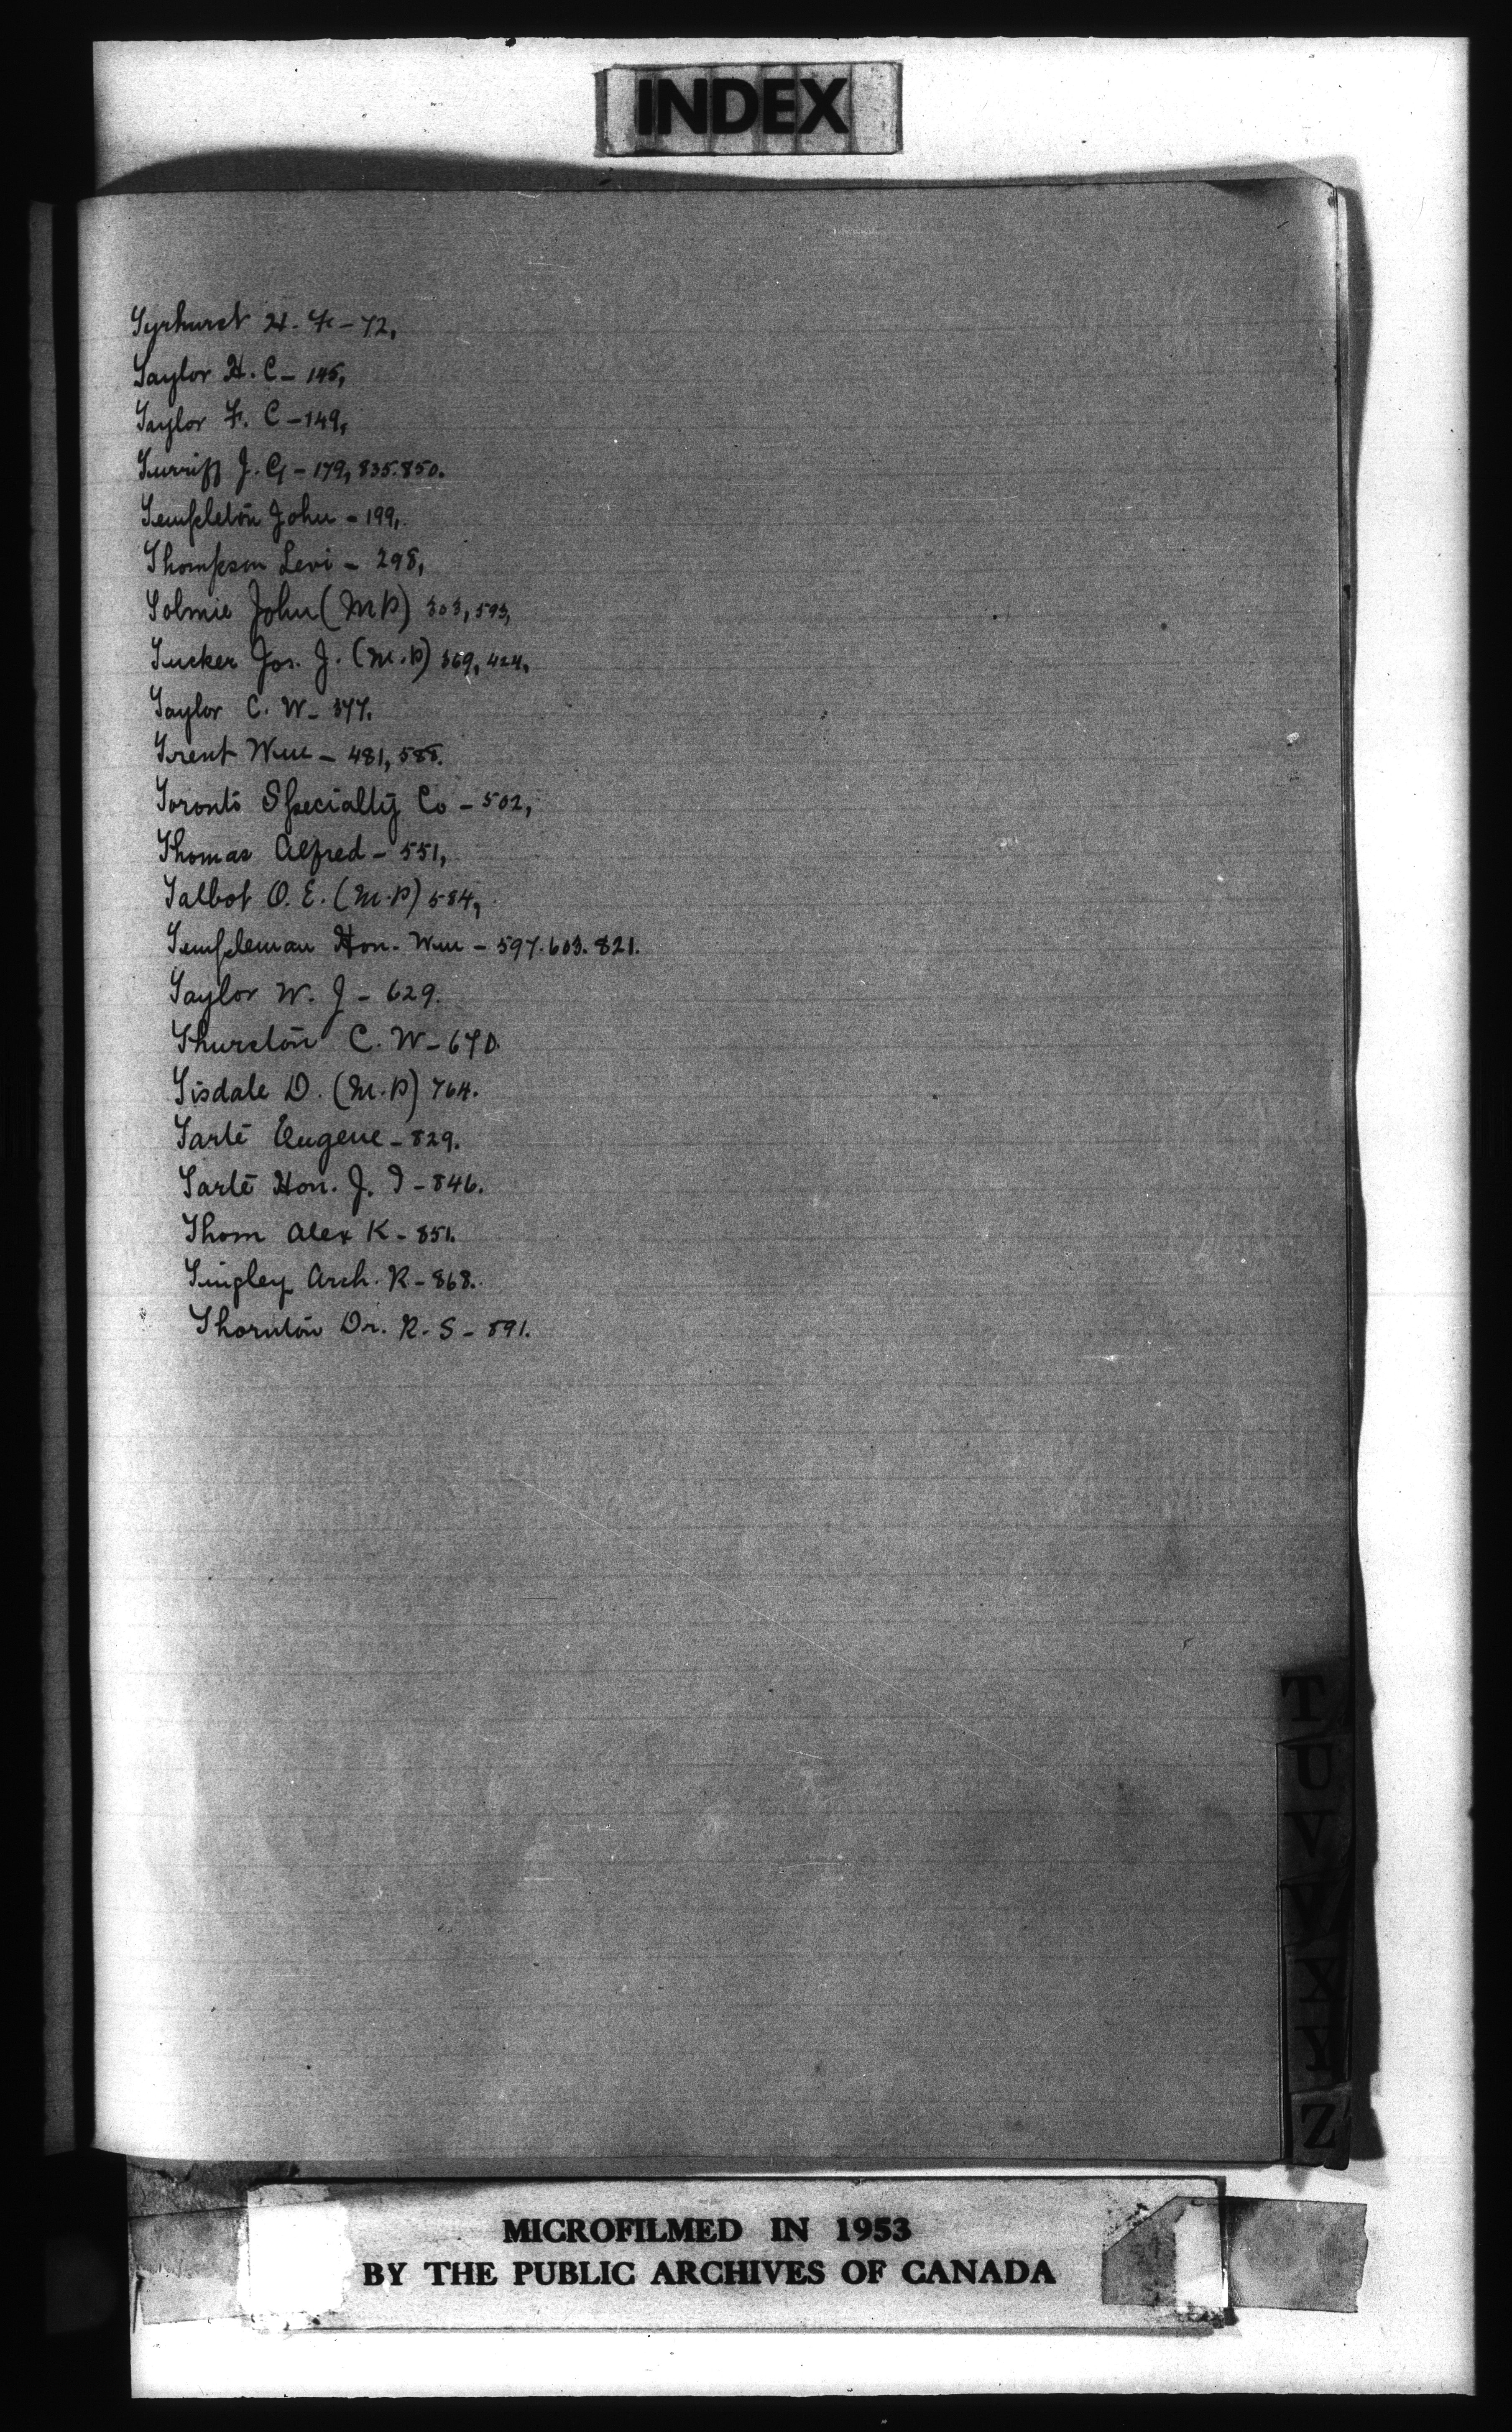 INDEX
Tyrhurst H. F. - 72,
Taylor H. C - 145,
Taylor F. C - 149,
Turriff J. G - 179, 835. 850.
Templeton John - 199,
Thompson Levi - 298,
Tolmie John (M P) 303, 593,
Tucker Jos. J. (M. P) 369, 424,
Taylor C. W - 377.
Trent Wm - 481, 588.
Toronto Specialty Co - 502,
Thomas Alfred - 551,
Talbot O. E. (M. P) 584,
Templeman Hon. Wm - 597. 603. 821.
Taylor W. J - 629.
Thurston C. W - 670.
Tisdale D. (M. P) 764.
Tarte Eugene - 829.
Tarte Hon. J. I - 846.
Thom Alex K - 851.
Tingley Arch. R - 868.
Thornton Dr. R. S - 891.
T
U
V
W
X
Y
Z
MICROFILMED IN 1953
BY THE PUBLIC ARCHIVES OF CANADA